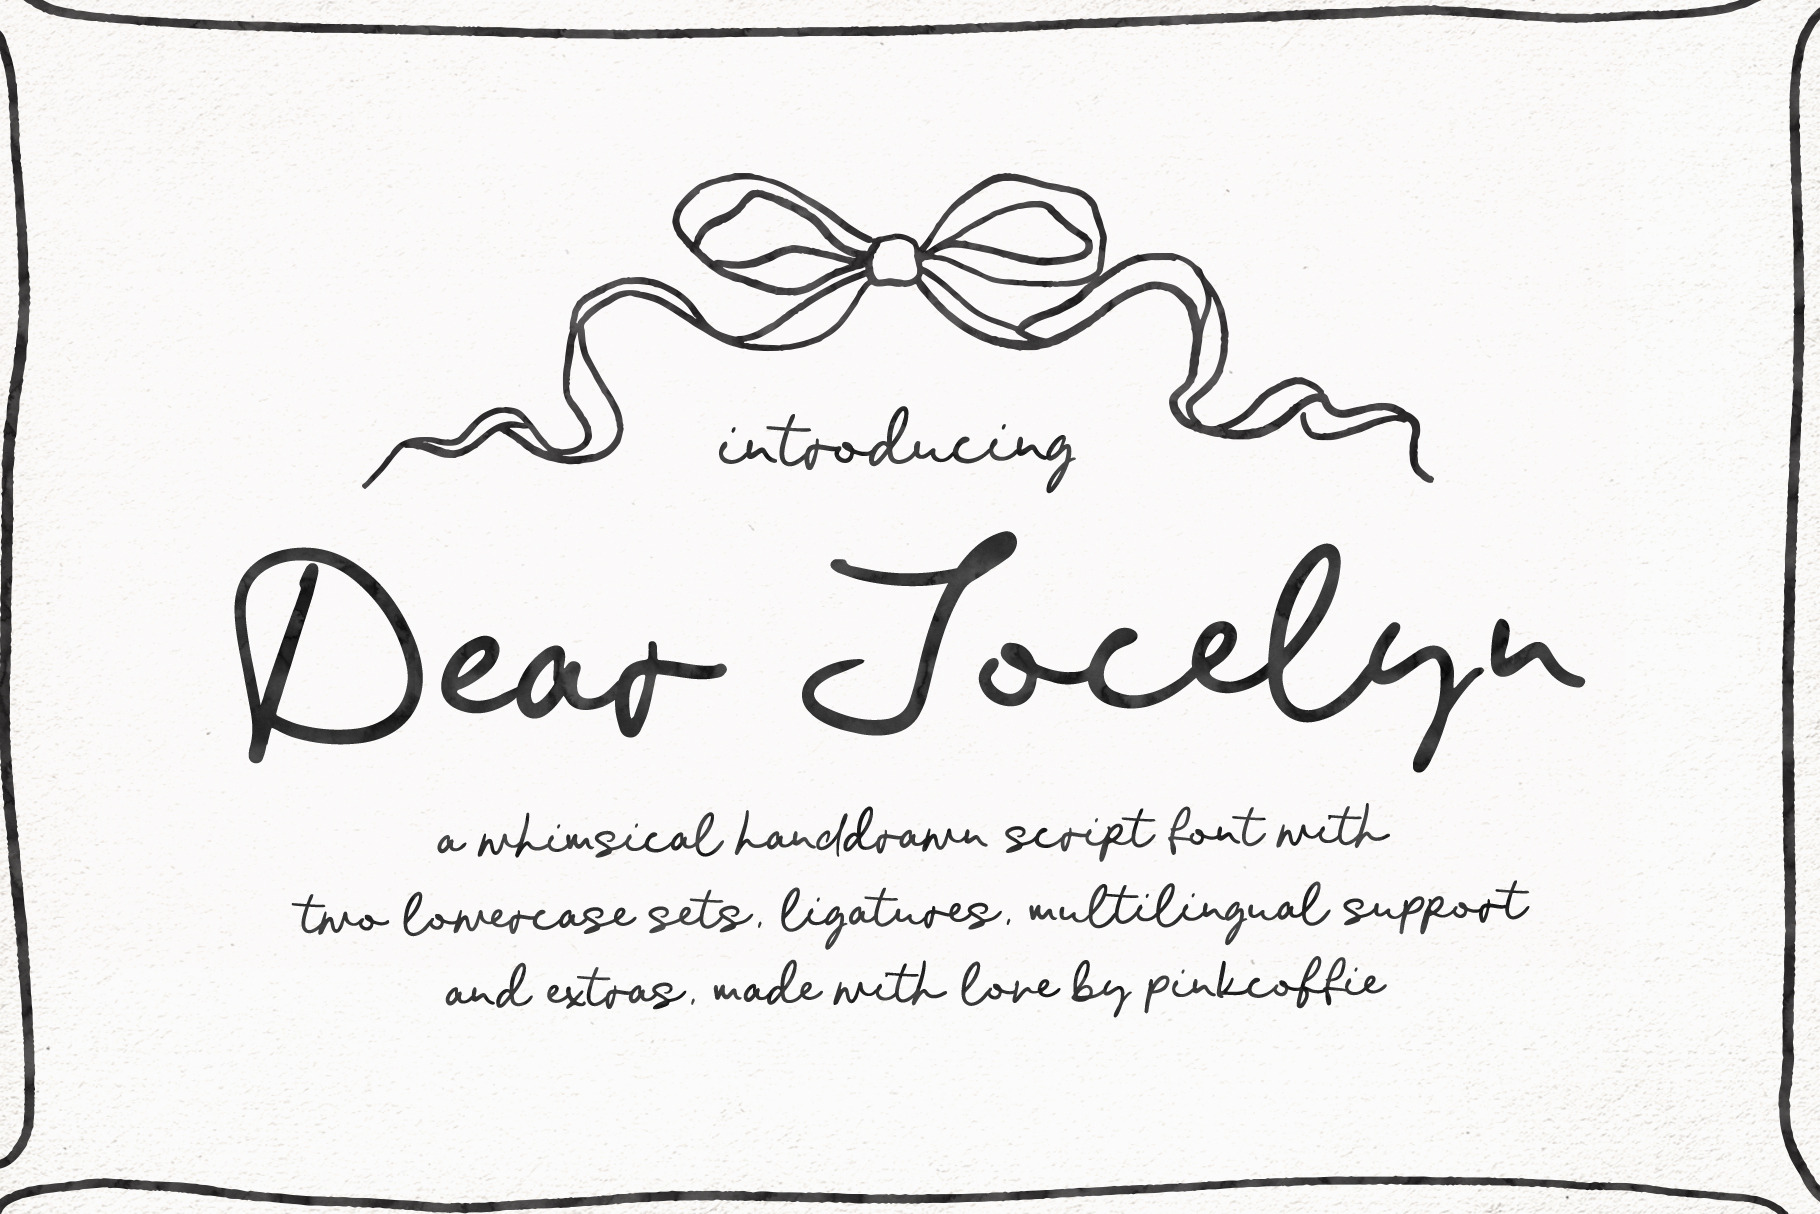 introducing
Dear Jocelyn
a whimsical handdrawn script font with
two lowercase sets, ligatures, multilingual support
and extras, made with love by pinkcoffie